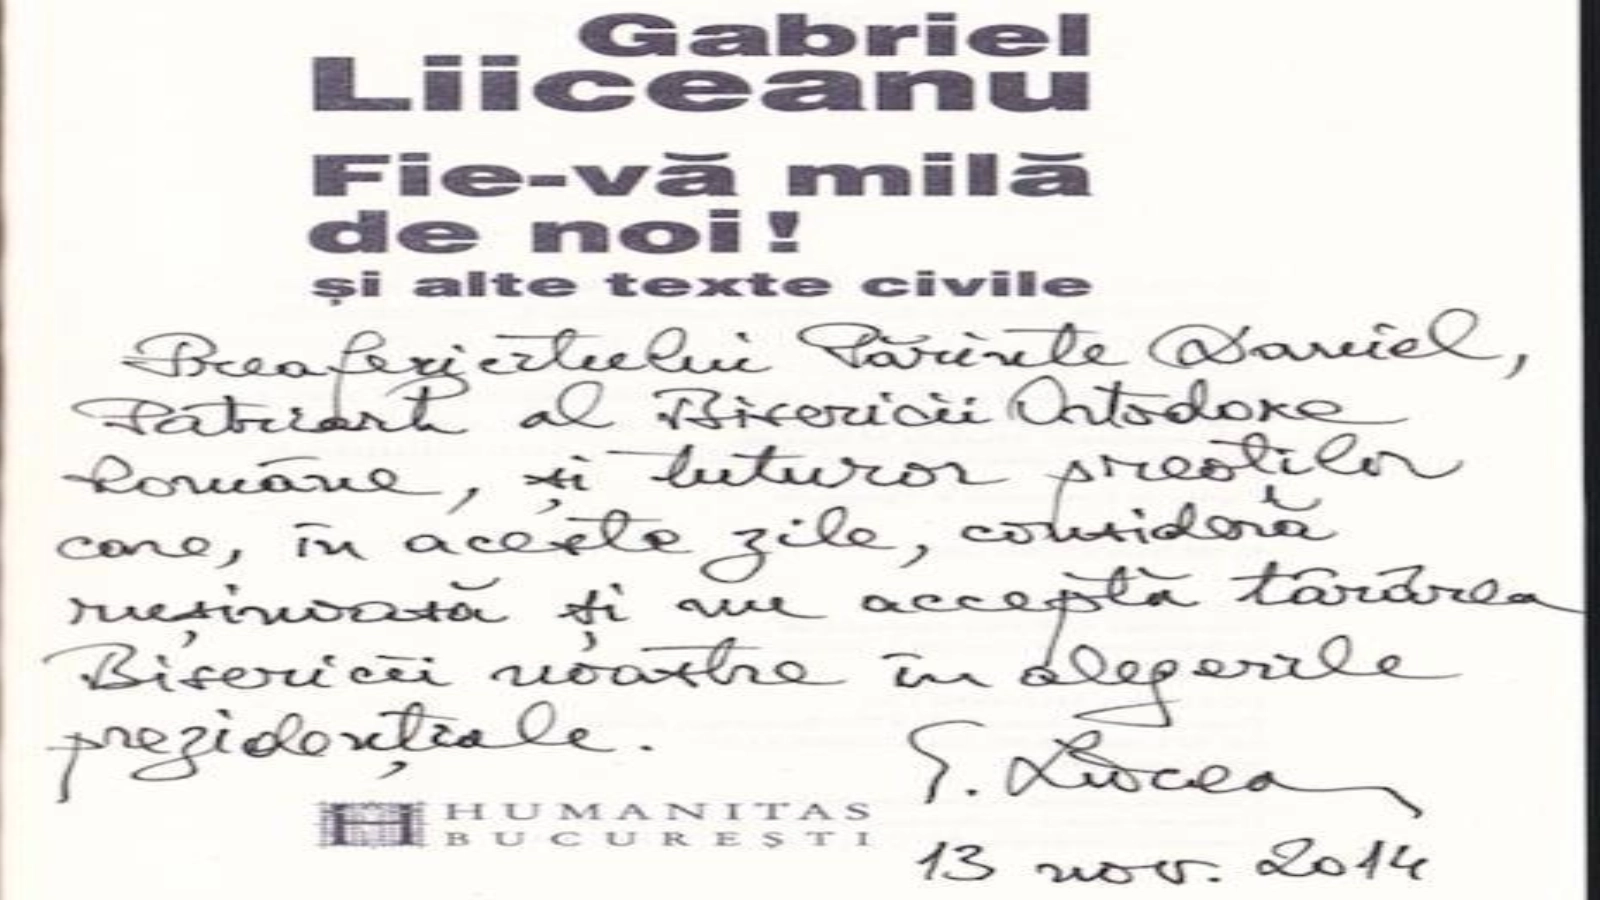 Gabriel
Liiceanu
Fie-vă milă
de noi!
și alte texte civile
Preafericitului Părinte Daniel,
Patriarh al Bisericii Ortodoxe
Române, și tuturor preoților
care, în aceste zile, consideră
rușinoasă și nu acceptă târârea
Bisericii noastre în alegerile
prezidențiale.
G. Liiceanu
HUMANITAS
BUCUREȘTI
13 nov. 2014